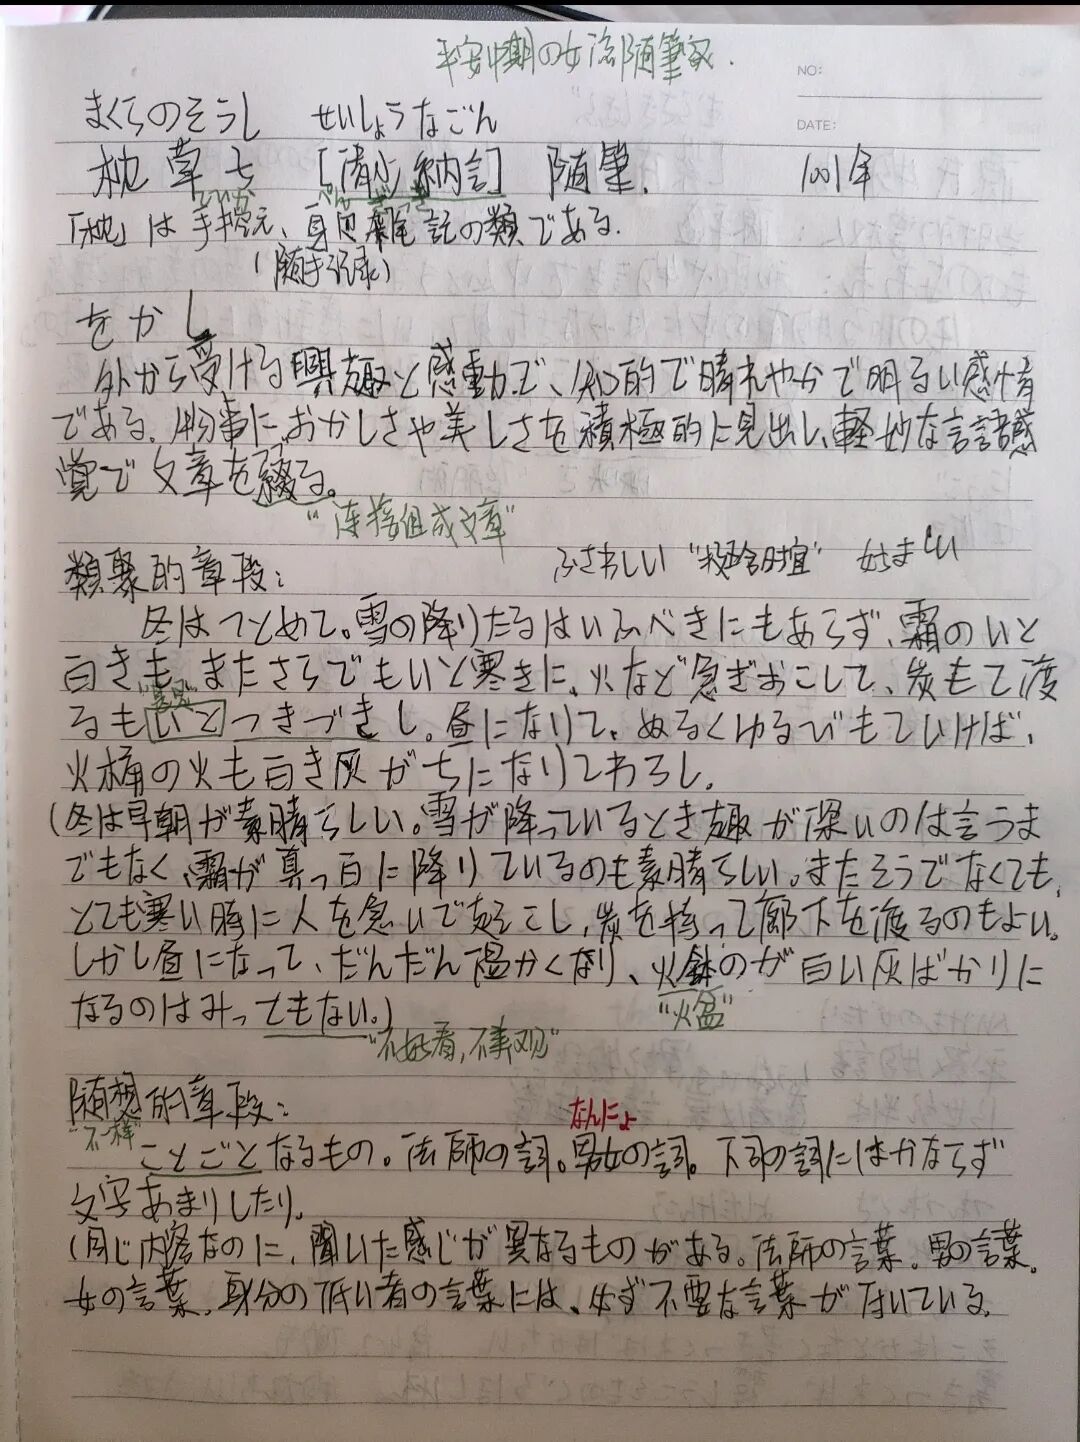 平安中期の女流随筆家.
NO:
まくらのそうし せいしょうなごん
DATE:
枕草子 [清少納言] 随筆. 1001年
ひか べん ざっき
「枕」は手控え、身辺雑記の類である.
(随手记录)
をかし
外から受ける興趣と感動で、知的で晴れやかで明るい感情
である. 物事に、おかしさや美しさを積極的に見出し、軽妙な言語感
覚で文章を綴る。
"连接组成文章"
ふさわしい "极合时宜" 好ましい
類聚的章段:
冬はつとめて。雪の降りたるはいふべきにもあらず、霜のいと
白きも、またさらでもいと寒きに、火など急ぎおこして、炭もて渡
"甚是"
るもいとつきづきし。昼になりて、ぬるくゆるびもていけば、
火桶の火も白き灰がちになりてわろし.
(冬は早朝が素晴らしい。雪が降っているとき趣が深いのは言うま
でもなく、霜が真っ白に降りているのも素晴らしい。またそうでなくても、
とても寒い時に人を急いで起こし、炭を持って廊下を渡るのもよい。
しかし昼になって、だんだん温かくなり、火鉢のが白い灰ばかりに
なるのはみってもない。)
"火盆"
"不好看,不美观"
随想的章段:
なんにょ
"不一样"
ことごとなるもの。法師の詞。男女の詞。下司の詞にはかならず
文字あまりしたり。
(同じ内容なのに、聞いた感じが異なるものがある。法師の言葉。男の言葉。
女の言葉. 身分の低い者の言葉には、必ず不要な言葉が付いている。